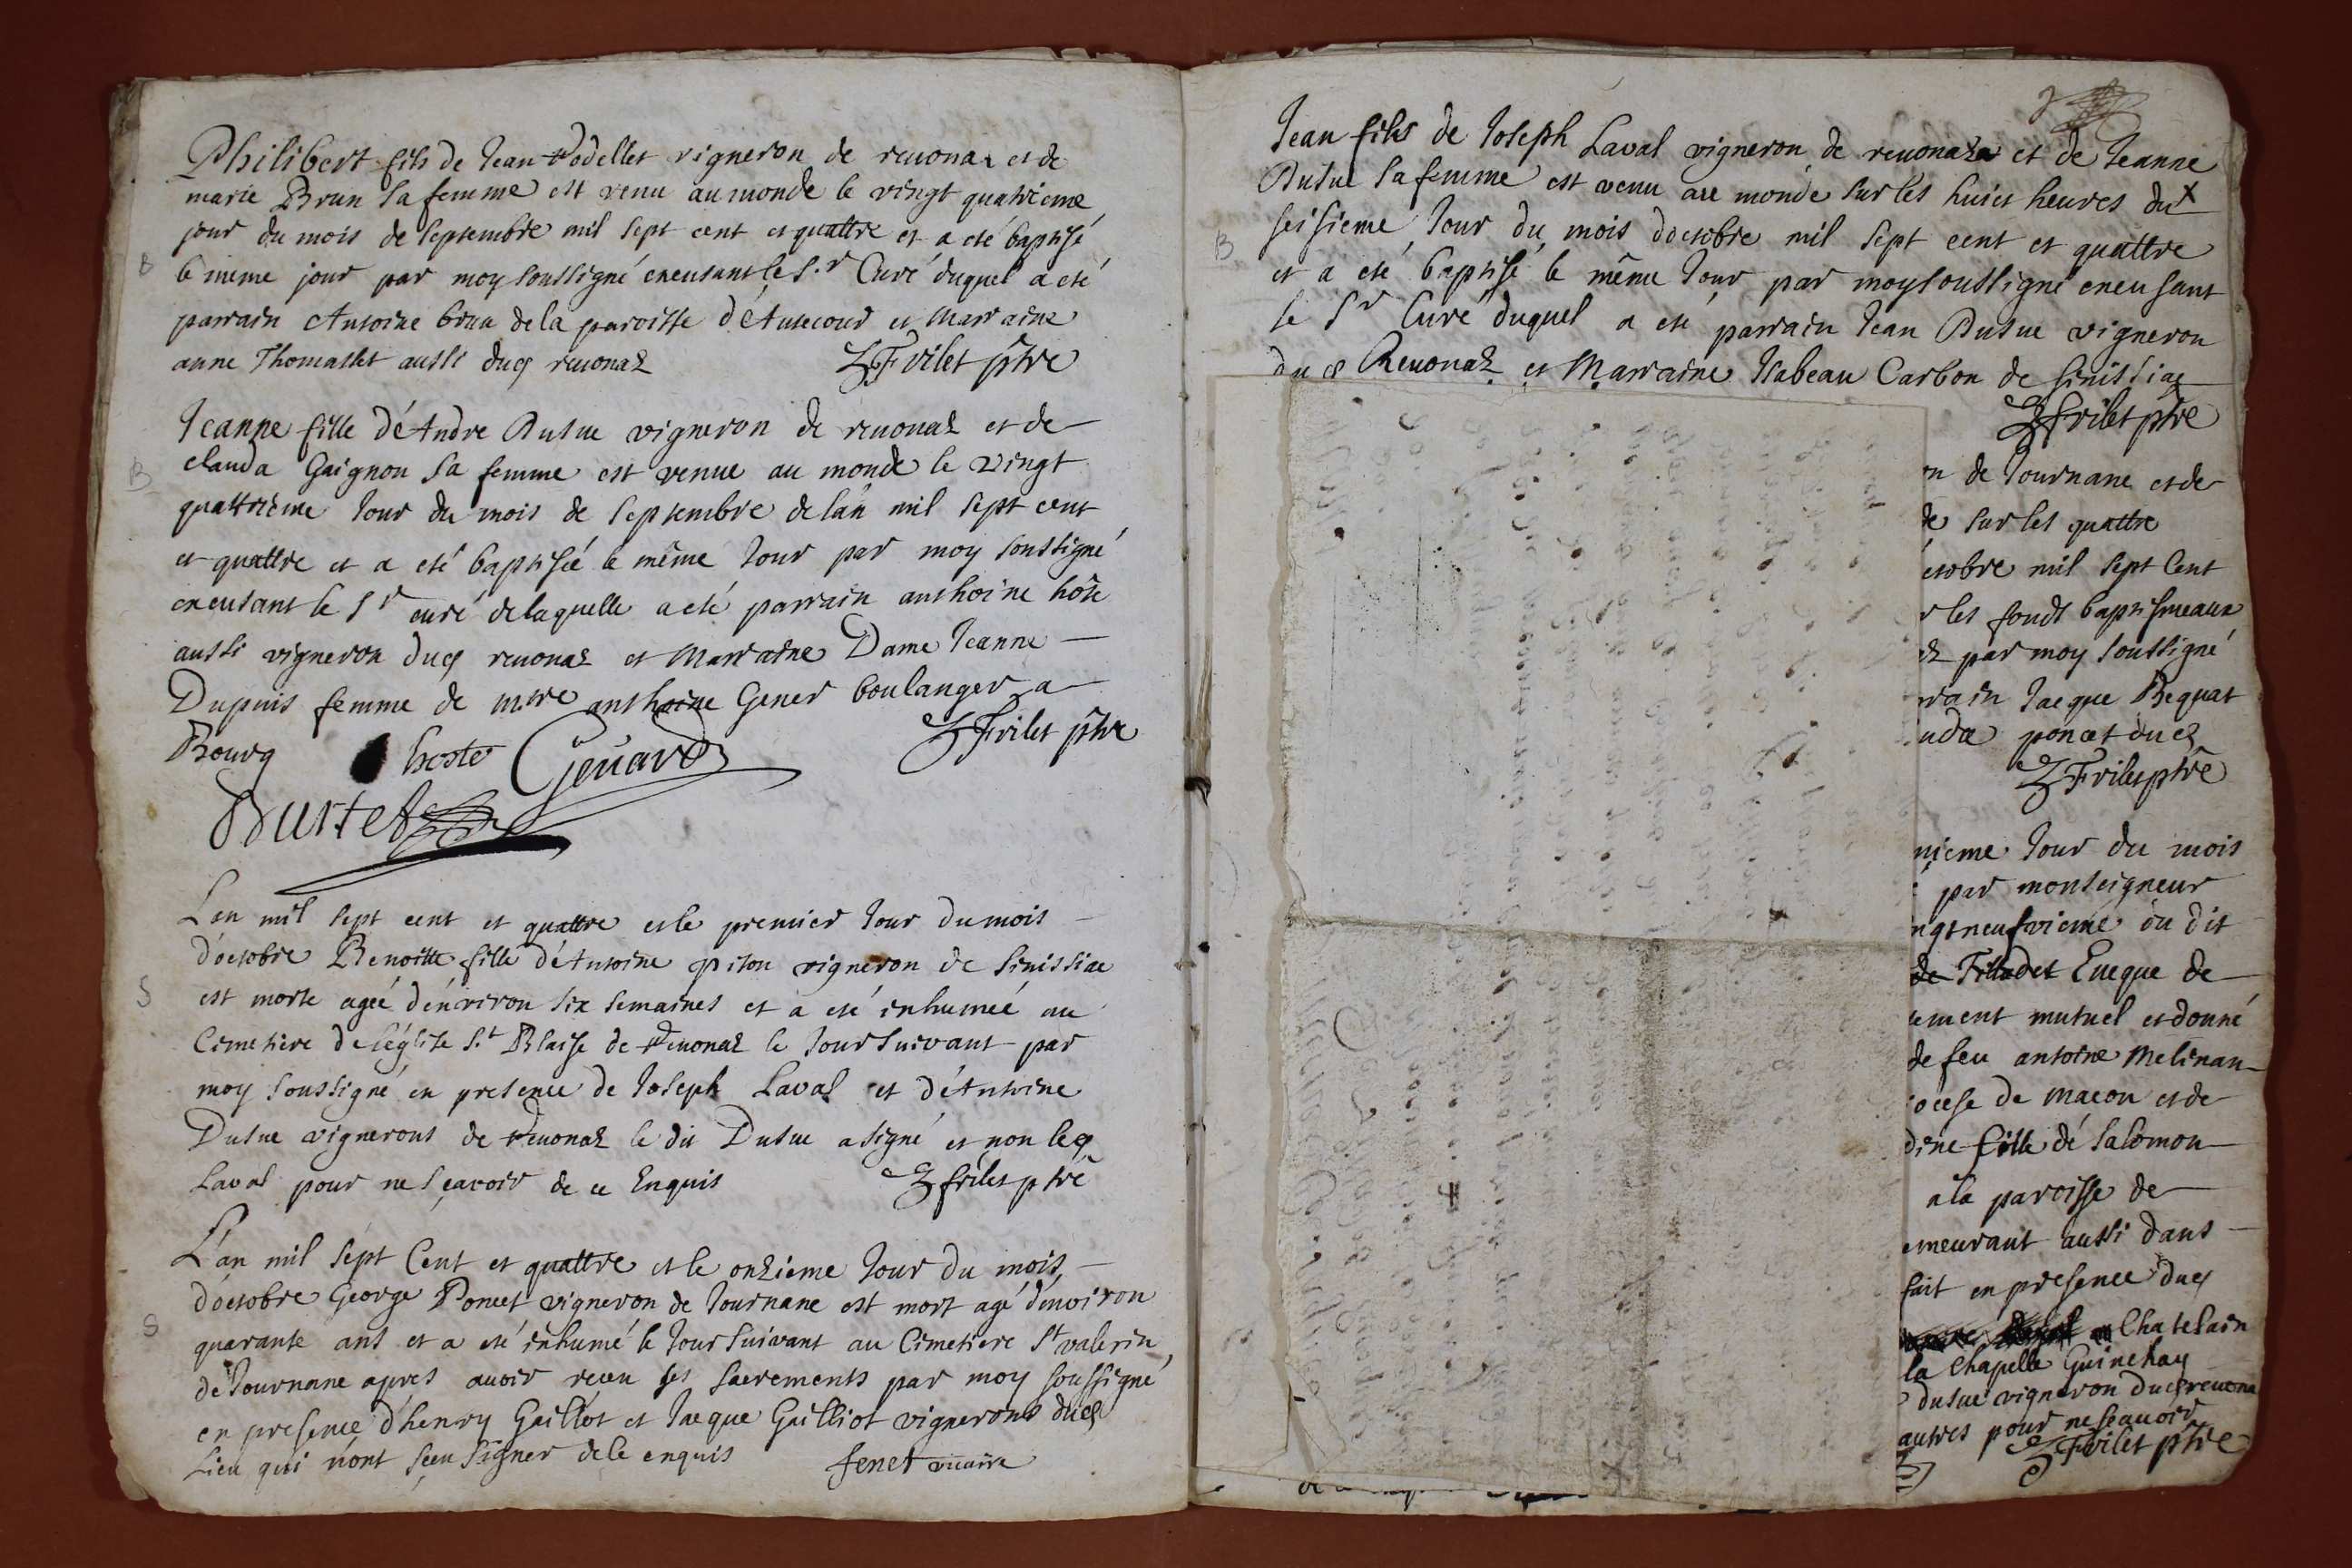 Philibert fils de Jean Vodellet vigneron de reuonaz et de
marie Brun sa femme est venu au monde le vingt quatrieme
jour du mois de septembre mil sept cent et quattre et a eté baptisé
B
le meme jour par moy soussigné encusant le S.r Curé duquel a eté
parrain Antoine brun de la paroisse d'Antecour et Marraine
anne Thomasset aussi duq reuonaz
ZFrilet ptre
Jeanne fille d'Andre Dutue vigneron de reuonaz et de
B
clauda Gaignon sa femme est venue au monde le vingt
quattrieme Jour du mois de septembre de lan mil sept cent
et quattre et a eté baptisée le même Jour par moy soussigné
encusant le Sr curé de laquelle a eté parrain anthoine hôte
aussi vigneron duq reuonaz et Marraine Dame Jeanne
Dupuis femme de mtre anthoine Gener boulanger a
Bourg
hoste
Genard
ZFrilet ptre
Burtet
Lan mil sept cent et quattre et le premier Jour du mois
d'octobre Benoitte fille d'Antoine piton vigneron de sinissiac
S
est morte ageé d'environ six semaines et a eté inhumeé au
Cimetiere de léglise S.t Blaise de Reuonaz le Jour suivant par
moy soussigné en presence de Joseph Laval et d'Antoine
Dutue vignerons de Reuonaz le dit Dutue a signé et non leq
Laval pour ne sçavoir de ce Enquis
Zfrilet ptre
L'an mil sept Cent et quattre et le onzieme Jour du mois
d'octobre George Poncet vigneron de Journane est mort agé d'environ
S
quarante ans et a eté inhumé le Jour suivant au Cimetiere St valerin
de Journane apres avoir receu ses sacrements par moy soussigné
en presence d'henry Gaillot et Jacque Gailliot vignerons dud
Lieu qui n'ont sceu signer de le enquis
fenet vicaire
Jean fils de Joseph Laval vigneron de reuonaz et de Jeanne
Dutue sa femme est venu au monde sur les huict heures du
seisieme Jour du mois d'octobre mil sept cent et quattre
B
et a eté baptisé le même Jour par moy soussigné encusant
le Sr Curé duquel a eté parrain Jean Dutue vigneron
du q Reuonaz et Marraine Isabeau Carbon de sinissiac
Zfrilet ptre
n de Journane et de
de sur les quattre
ctobre mil sept Cent
r les fonds baptismeaux
par moy soussigné
rrain Jacque Bequat
uda poncet dud
ZFrilet ptre
nieme Jour du mois
par monseigneur
ngt neufvieme ou dit
de Tilladet Eueque de
tement mutuel et donné
de feu antoine Melinan
iocese de Macon et de
dine fille de salomon
a la paroisse de
emeurant aussi dans
fait en presence duq
Chatelain
la Chapelle Guinchay
dutue vigneron dud reuona
autres pour ne sçauoir
ZFrilet ptre